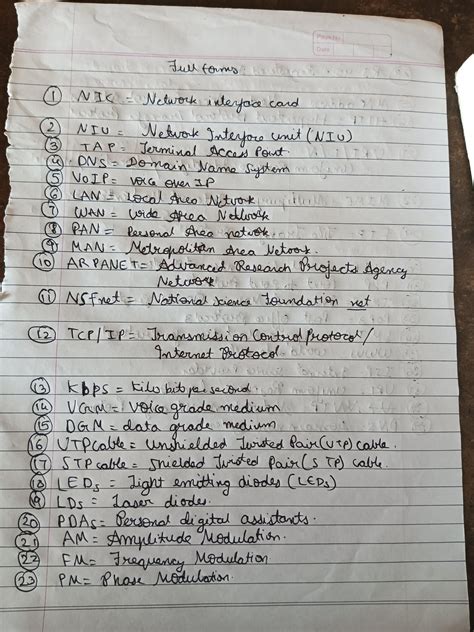 Page No.
Date
Full forms
① NIC = Network interface card
② NIU = Network Interface unit (NIU)
③ TAP = Terminal Access Point.
④ DNS = Domain Name System
⑤ VoIP = voice over IP
⑥ LAN = Local Area Network
⑦ WAN = wide Area Network
⑧ PAN = Personal Area network
⑨ MAN = Metropolitan Area Network.
⑩ ARPANET = Advanced Research Projects Agency
Network
⑪ NSfnet = National Science Foundation net
⑫ TCP/IP = Transmission Control Protocol/
Internet Protocol
⑬ Kbps = Kilo bit per second
⑭ VGM = voice grade medium
⑮ DGM = data grade medium
⑯ UTP cable = Unshielded Twisted Pair (UTP) cable.
⑰ STP cable = Shielded Twisted Pair (STP) cable.
⑱ LEDs = Light emitting diodes (LEDs)
⑲ LDs = Laser diodes.
⑳ PDAs = Personal digital assistants.
㉑ AM = Amplitude Modulation.
㉒ FM = Frequency Modulation
㉓ PM = Phase Modulation.